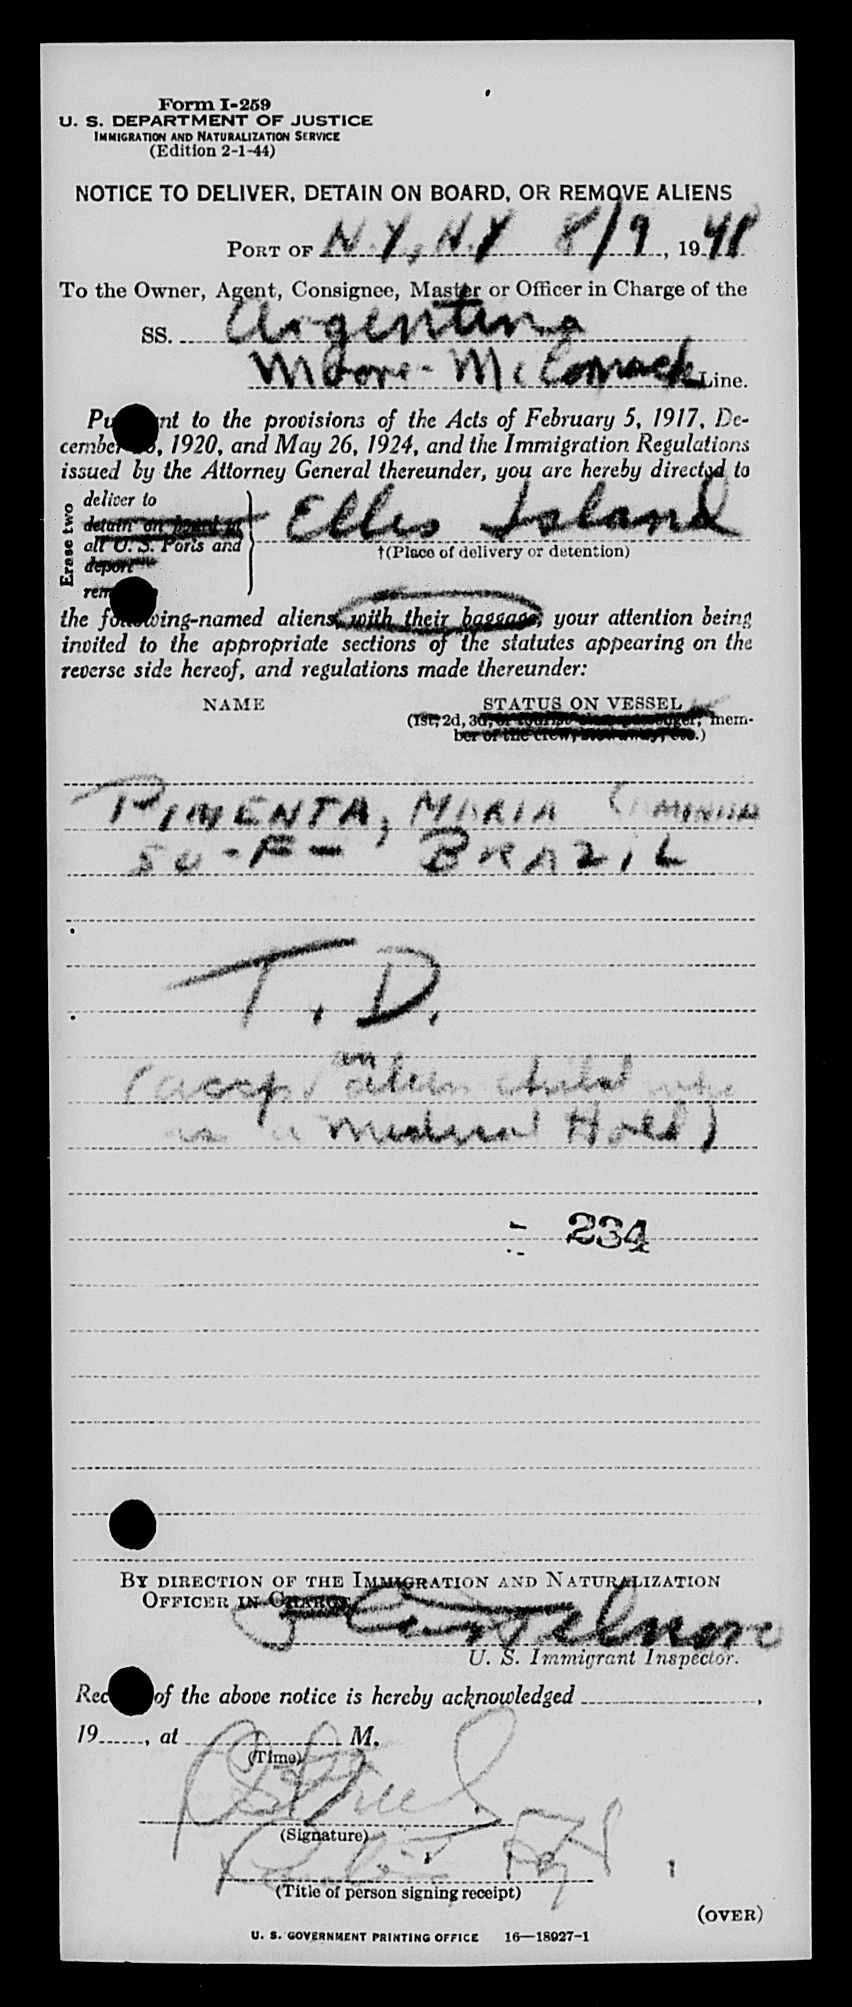 Form I-259
U. S. DEPARTMENT OF JUSTICE
IMMIGRATION AND NATURALIZATION SERVICE
(Edition 2-1-44)
NOTICE TO DELIVER, DETAIN ON BOARD, OR REMOVE ALIENS
PORT OF N.Y., N.Y 8/9, 1948
To the Owner, Agent, Consignee, Master or Officer in Charge of the
SS. Argentina
Moore-McCormack Line.
Pu nt to the provisions of the Acts of February 5, 1917, De-
cember , 1920, and May 26, 1924, and the Immigration Regulations
issued by the Attorney General thereunder, you are hereby directed to
Erase two
deliver to
detain on board at
all U. S. Ports and
deport
rem
Ellis Island
†(Place of delivery or detention)
the following-named aliens, with their baggage; your attention being
invited to the appropriate sections of the statutes appearing on the
reverse side hereof, and regulations made thereunder:
NAME STATUS ON VESSEL
(1st, 2d, 3d, or tourist class passenger, mem-
ber of the crew, stowaway, etc.)
PIMENTA, MARIA
50-F- BRAZIL
T. D.
(accp an alien child who
is a medical Hold)
234
BY DIRECTION OF THE IMMIGRATION AND NATURALIZATION
OFFICER IN CHARGE
U. S. Immigrant Inspector.
Rec of the above notice is hereby acknowledged ,
19 , at M.
(Time)
(Signature)
(Title of person signing receipt)
(OVER)
U. S. GOVERNMENT PRINTING OFFICE 16—18927-1